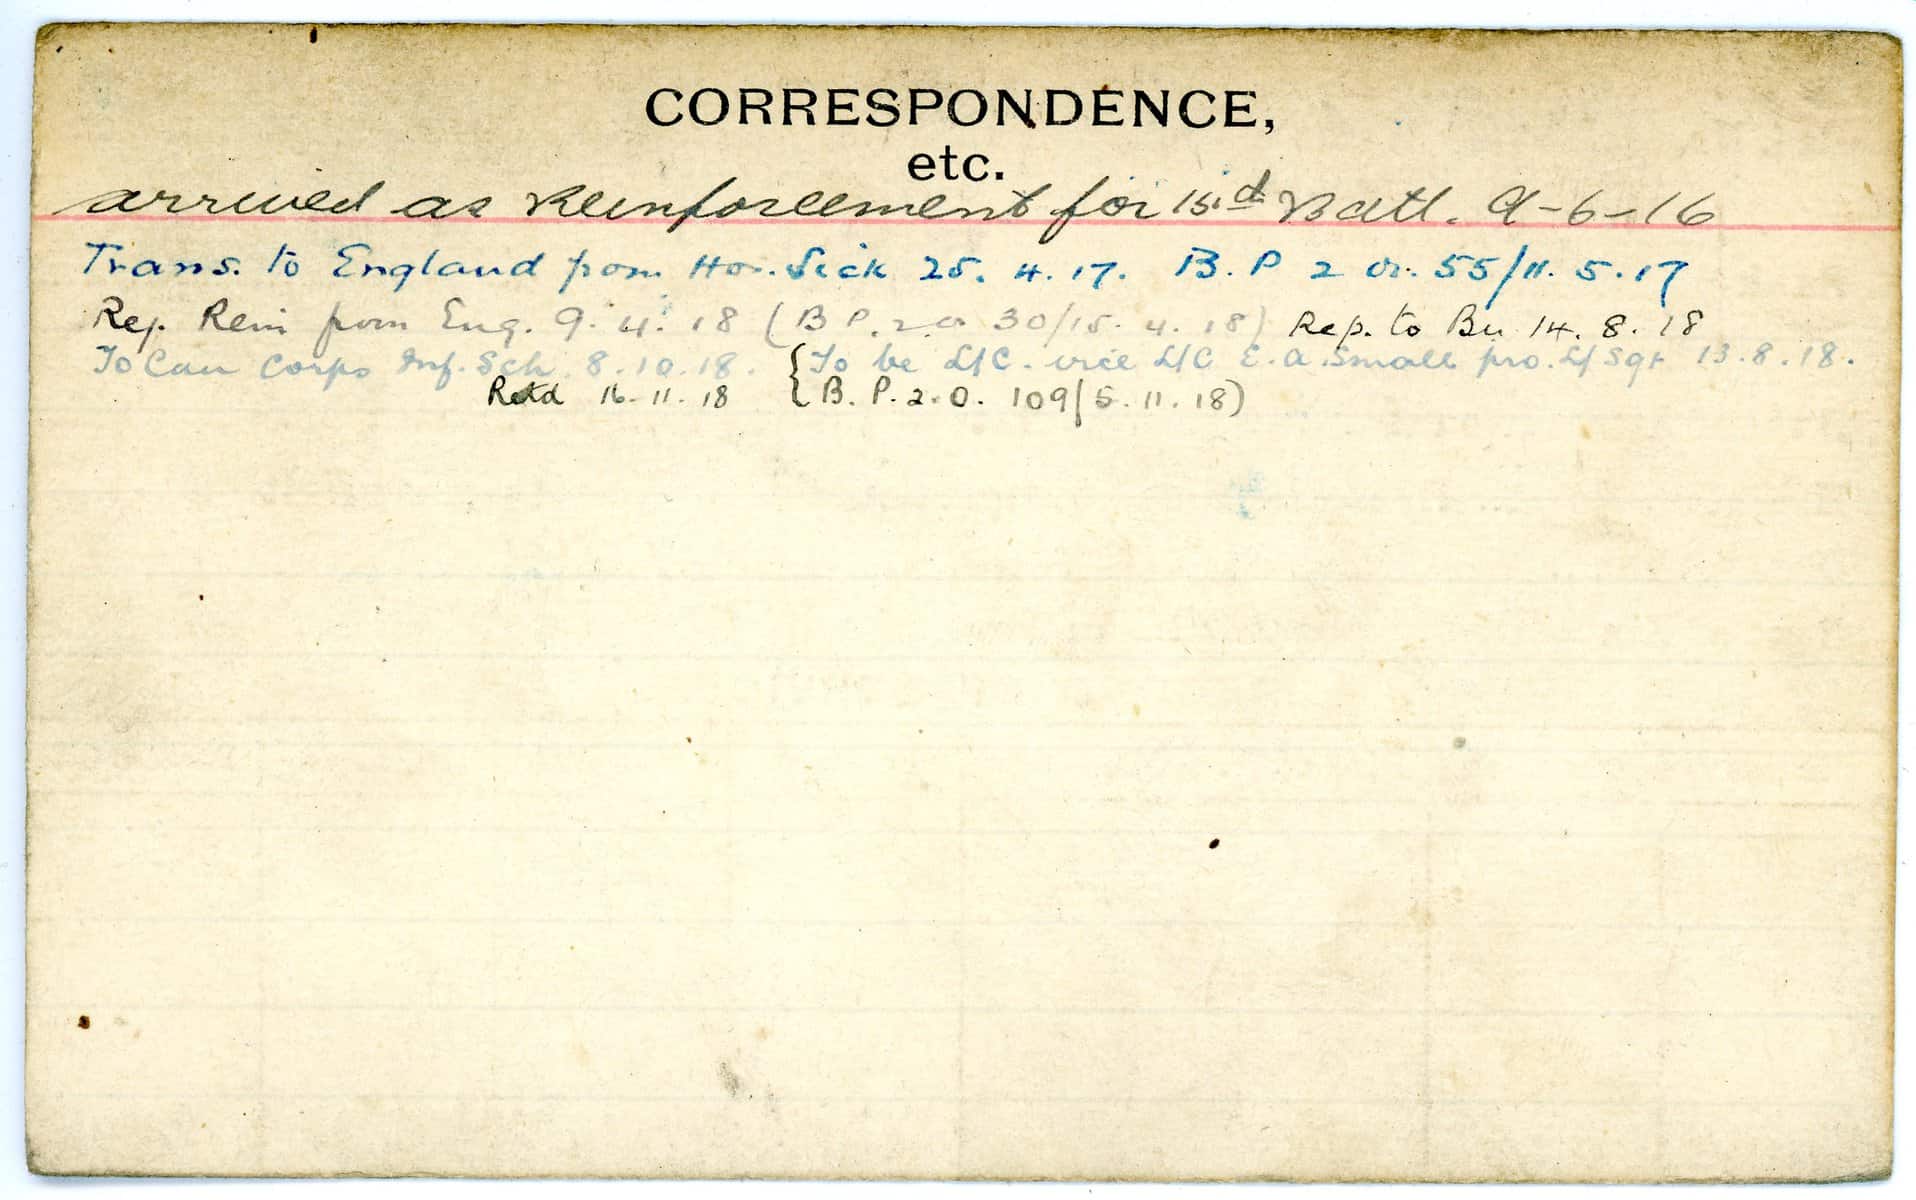 CORRESPONDENCE,
etc.
arrived as Reinforcement for Batl. 9-6-16
Trans. to England from Hos. Sick 25. 4. 17. B. P 2 Or. 55/11. 5. 17
Rep. Rein from Eng. 9. 4. 18 (B P. 2 O 30/15. 4. 18) Rep. to Bn 14. 8. 18
To Can Corps Inf. Sch. 8. 10. 18. {To be L/C. vice L/C E. A. Small pro. L/Sgt 13. 8. 18.
Retd 16. 11. 18 {B. P. 2. O. 109(5. 11. 18)